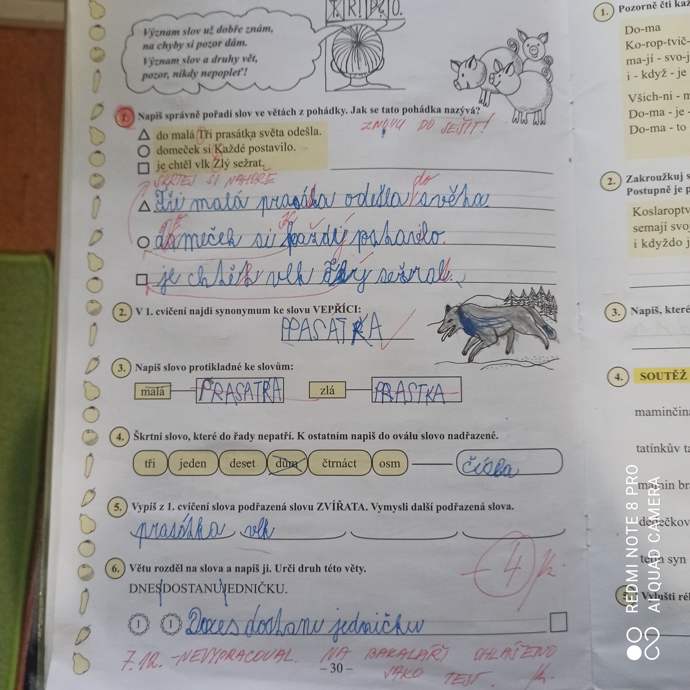 Význam slov už dobře znám,
na chyby si pozor dám.
Význam slov a druhy vět,
pozor, nikdy nepopleť!
1. Napiš správně pořadí slov ve větách z pohádky. Jak se tato pohádka nazývá?
ZNOVU DO SEŠIT!
△ do malá Tři prasátka světa odešla.
○ domeček si Každé postavilo.
□ je chtěl vlk Zlý sežrat.
NAHOŘE
do
△ Tři malá prasátka odešla světa
○ domeček si každý postavilo.
□ je chtěl vlk Zlý sežrat.
2. V 1. cvičení najdi synonymum ke slovu VEPŘÍCI:
PRASATKA
3. Napiš slovo protikladné ke slovům:
malá PRASATKA zlá PRASTKA
4. Škrtni slovo, které do řady nepatří. K ostatním napiš do oválu slovo nadřazené.
tři jeden deset dům čtrnáct osm čísla
5. Vypiš z 1. cvičení slova podřazená slovu ZVÍŘATA. Vymysli další podřazená slova.
prasátka, vlk
6. Větu rozděl na slova a napiš ji. Urči druh této věty.
-4
DNESDOSTANUJEDNIČKU.
! ! Dnes dostanu jedničku
7.12. - NEVYPRACOVAL. NA BAKALÁŘI OHLÁŠENO
JAKO TEST.
– 30 –
1. Pozorně čti
Do-ma
Ko-rop-tvič-
ma-jí - svo-j
i - když - je
Všich-ni - n
Do-ma - je -
Do-ma - to
2. Zakroužkuj s
Postupně je p
Koslaroptv
semají svo
i kdyždo j
3. Napiš, které
4. SOUTĚŽ
maminčin
tatínkův
mamin br
dědečkov
syn
REDMI NOTE 8 PRO
AI QUAD CAMERA